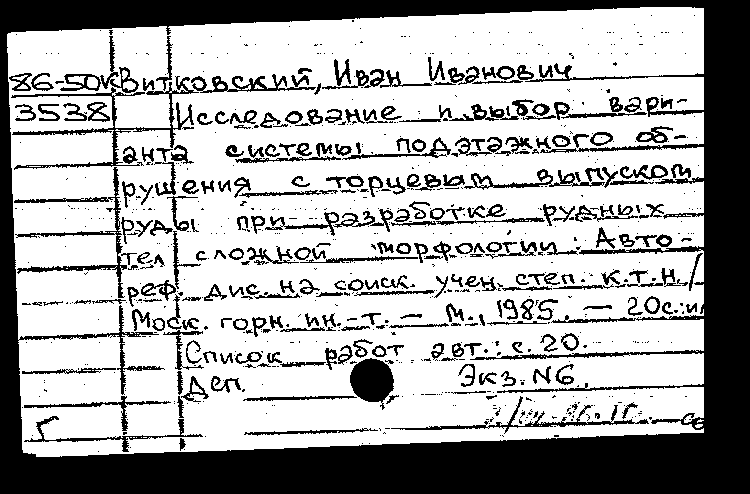 86-50к Витковский, Иван Иванович
3538 Исследование и выбор вари-
анта системы подэтажного об-
рушения с торцевым выпуском
руды при разработке рудных
тел сложной морфологии: Авто-
реф. дис. на соиск. учен. степ. к.т.н./
Моск. горн. ин.-т. – М., 1985. – 20с.:ил
Список работ авт.: с. 20.
Деп. Экз. N6.
Г